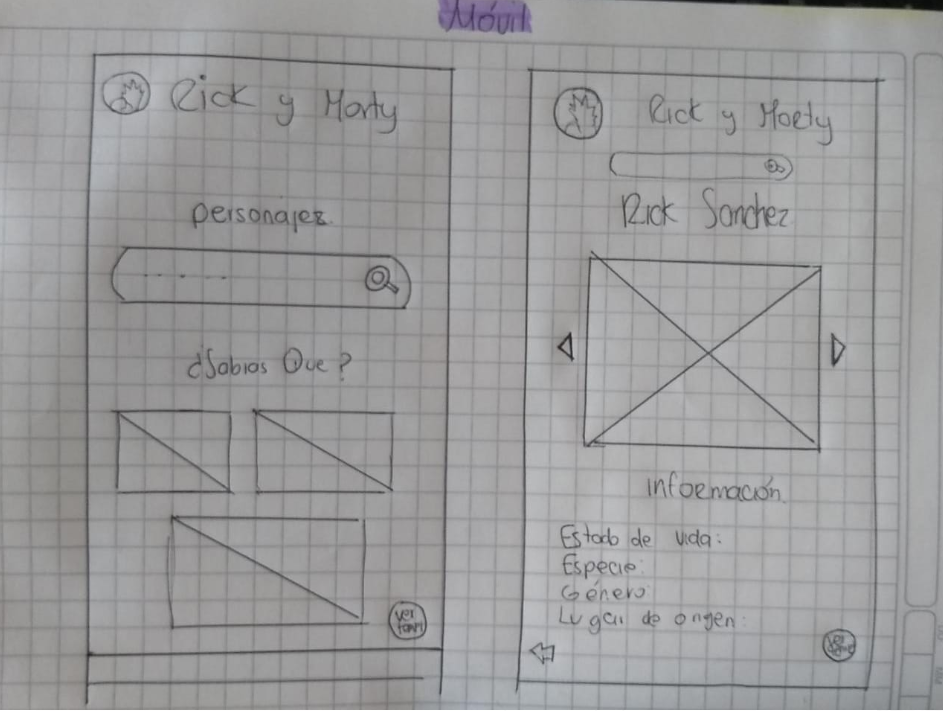 Móvil
Rick y Morty
personajes
¿Sabias Que?
Rick y Morty
Rick Sanchez
información
Estado de vida:
Especie:
Género
Lugar de origen: